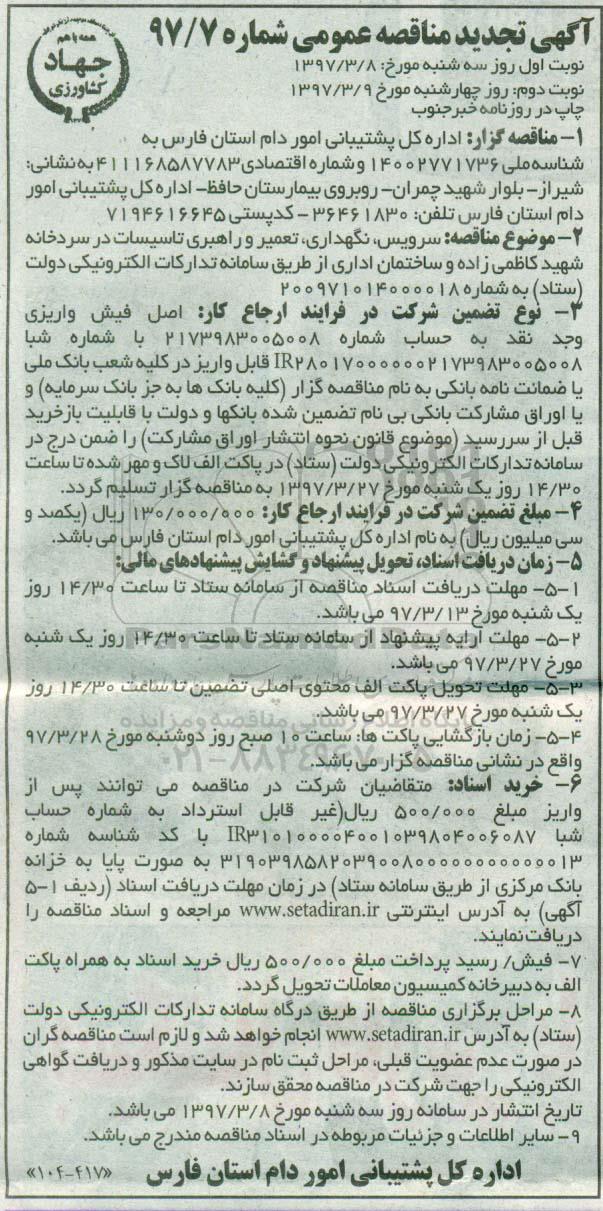 آگهی تجدید مناقصه عمومی شماره ۹۷/۷
نوبت اول روز سه شنبه مورخ: ۱۳۹۷/۳/۸
نوبت دوم: روز چهارشنبه مورخ ۱۳۹۷/۳/۹
چاپ در روزنامه خبرجنوب
همه با هم
جهاد
کشاورزی
۱- مناقصه گزار: اداره کل پشتیبانی امور دام استان فارس به
شناسه ملی ۱۴۰۰۲۷۷۱۷۳۶ و شماره اقتصادی ۴۱۱۱۶۸۵۸۷۷۸۳ به نشانی:
شیراز- بلوار شهید چمران- روبروی بیمارستان حافظ- اداره کل پشتیبانی امور
دام استان فارس تلفن: ۳۶۴۶۱۸۳۰ - کدپستی ۷۱۹۴۶۱۶۶۴۵
۲- موضوع مناقصه: سرویس، نگهداری، تعمیر و راهبری تاسیسات در سردخانه
شهید کاظمی زاده و ساختمان اداری از طریق سامانه تدارکات الکترونیکی دولت
(ستاد) به شماره ۲۰۰۹۷۱۰۱۴۰۰۰۰۱۸
۳- نوع تضمین شرکت در فرایند ارجاع کار: اصل فیش واریزی
وجد نقد به حساب شماره ۲۱۷۳۹۸۳۰۰۵۰۰۸ با شماره شبا
IR۲۸۰۱۷۰۰۰۰۰۰۰۲۱۷۳۹۸۳۰۰۵۰۰۸ قابل واریز در کلیه شعب بانک ملی
یا ضمانت نامه بانکی به نام مناقصه گزار (کلیه بانک ها به جز بانک سرمایه) و
یا اوراق مشارکت بانکی بی نام تضمین شده بانکها و دولت با قابلیت بازخرید
قبل از سررسید (موضوع قانون نحوه انتشار اوراق مشارکت) را ضمن درج در
سامانه تدارکات الکترونیکی دولت (ستاد) در پاکت الف لاک و مهر شده تا ساعت
۱۴/۳۰ روز یک شنبه مورخ ۱۳۹۷/۳/۲۷ به مناقصه گزار تسلیم گردد.
۴- مبلغ تضمین شرکت در فرایند ارجاع کار: ۱۳۰/۰۰۰/۰۰۰ ریال (یکصد و
سی میلیون ریال) به نام اداره کل پشتیبانی امور دام استان فارس می باشد.
۵- زمان دریافت اسناد، تحویل پیشنهاد و گشایش پیشنهادهای مالی:
۵-۱- مهلت دریافت اسناد مناقصه از سامانه ستاد تا ساعت ۱۴/۳۰ روز
یک شنبه مورخ ۹۷/۳/۱۳ می باشد.
۵-۲- مهلت ارایه پیشنهاد از سامانه ستاد تا ساعت ۱۴/۳۰ روز یک شنبه
مورخ ۹۷/۳/۲۷ می باشد.
۵-۳- مهلت تحویل پاکت الف محتوی اصلی تضمین تا ساعت ۱۴/۳۰ روز
یک شنبه مورخ ۹۷/۳/۲۷ می باشد.
۵-۴- زمان بازگشایی پاکت ها: ساعت ۱۰ صبح روز دوشنبه مورخ ۹۷/۳/۲۸
واقع در نشانی مناقصه گزار می باشد.
۶- خرید اسناد: متقاضیان شرکت در مناقصه می توانند پس از
واریز مبلغ ۵۰۰/۰۰۰ ریال(غیر قابل استرداد به شماره حساب
شبا IR۳۱۰۱۰۰۰۰۴۰۰۱۰۳۹۸۰۴۰۰۶۰۸۷ با کد شناسه شماره
۳۱۹۰۳۹۸۵۸۲۰۳۹۰۰۸۰۰۰۰۰۰۰۰۰۰۰۰۱۳ به صورت پایا به خزانه
بانک مرکزی از طریق سامانه ستاد) در زمان مهلت دریافت اسناد (ردیف ۱-۵
آگهی) به آدرس اینترنتی www.setadiran.ir مراجعه و اسناد مناقصه را
دریافت نمایند.
۷- فیش/ رسید پرداخت مبلغ ۵۰۰/۰۰۰ ریال خرید اسناد به همراه پاکت
الف به دبیرخانه کمیسیون معاملات تحویل گردد.
۸- مراحل برگزاری مناقصه از طریق درگاه سامانه تدارکات الکترونیکی دولت
(ستاد) به آدرس www.setadiran.ir انجام خواهد شد و لازم است مناقصه گران
در صورت عدم عضویت قبلی، مراحل ثبت نام در سایت مذکور و دریافت گواهی
الکترونیکی را جهت شرکت در مناقصه محقق سازند.
تاریخ انتشار در سامانه روز سه شنبه مورخ ۱۳۹۷/۳/۸ می باشد.
۹- سایر اطلاعات و جزئیات مربوطه در اسناد مناقصه مندرج می باشد.
اداره کل پشتیبانی امور دام استان فارس
«۱۰۴-۴۱۷»